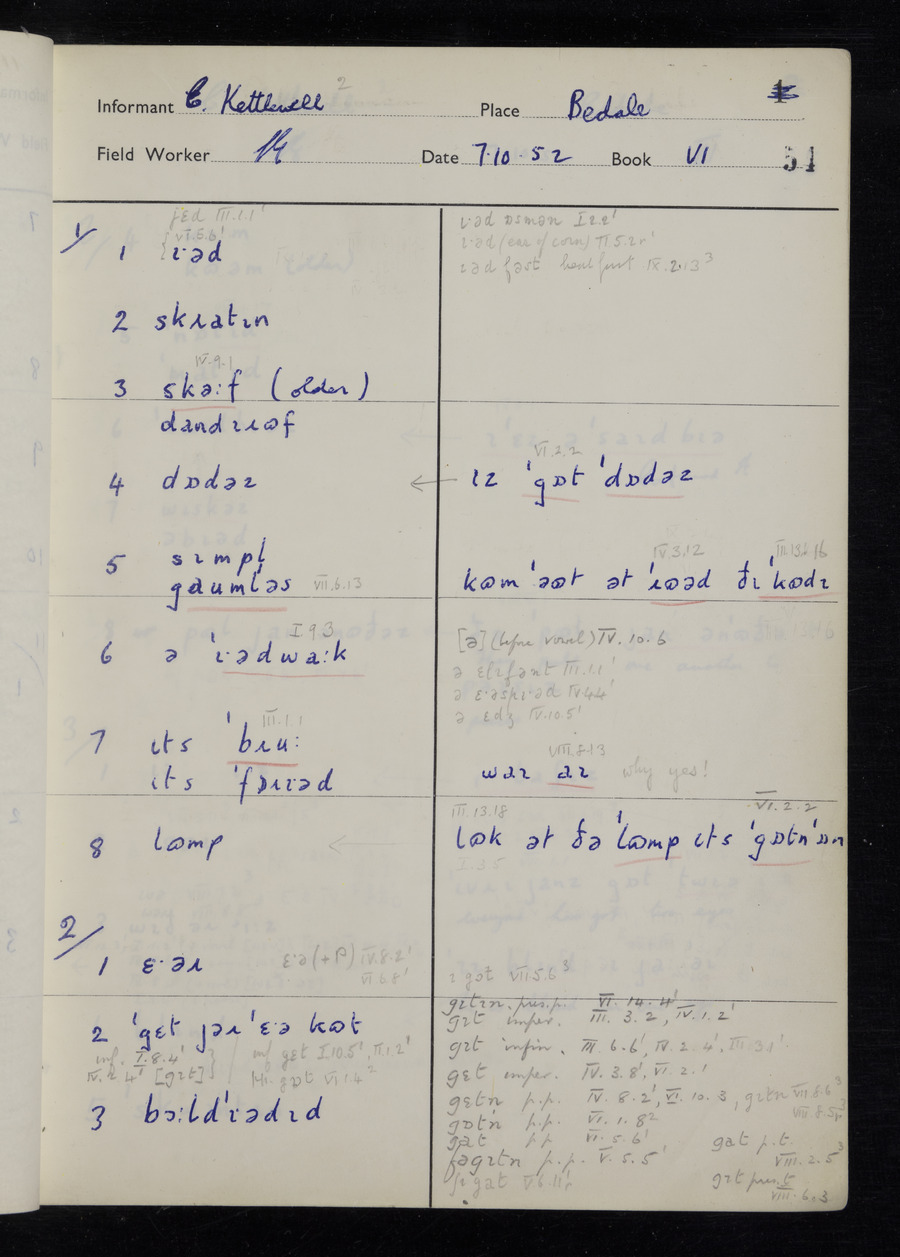 Informant C. Kettlewell 2 Place Bedale
Field Worker Date 7.10.52 Book VI 51
1/
jɛd III.1.1'
VI.5.6'
1 ɪ·əd
ɪ·əd (ear of corn) II.5.2
ɪəd fəst III IX.2.13³
2 skɹatɪn
IV.9.1
3 skə:f (older)
dandɹɪʊf
VI.2.2
4 dɒdəz ← ɪz 'gɒt 'dɒdəz
5 sɪmpl̩
gaumləs VII.6.13
IV.3.12
kʊm 'əʊt ət 'ɹʊəd ðɪ 'kʊdɪ
I 9 3
6 ə 'ɪ·ədwa:k
[ə] (before vowel) IV.10.6
ə ɛlɪfənt III.1.1'
ə IV.4.4'
ə ɛdʒ IV.10.5'
III.1.1
7 ɪts 'bɹu:
ɪts 'fɒɹɪəd
VIII.8.13
waɪ aɪ why yes!
8 lʊmp ←
III.13.18 VI.2.2
lʊk ət ðə 'lʊmp ɪts 'gɒtn 'ɒn
I.3.5
2/
1 ɛ·əɹ ɛ·ə (+P) IV.8.2'
VI 6.8'
ɪ gət VII.5.6³
gɪtɪn pres.p. VI.14.4'
gɪt imper. III.3.2', IV.1.2'
2 'gɛt jəɹ 'ɛ·ə kʊt
gɪt infin. III.6.6', IV.2.4', III.3.1'
inf. I.8.4' inf gɛt I.10.5', II.1.2'
IV.2 4' [gɪt] gɒt VI.1.4²
gɛt imper. IV.3.8', VI.2.1'
gɛtn p.p. IV.8.2', VI.10.3, gɪtn VII.8.6³
VIII.8.5
3 bɔ:ld'ɪədɪd
gɒtn p.p. VI.1.8²
gət p.p. VI.5.6' gat p.t.
VIII.2.5³
fəgɪtn p.p. V.5.5' gɪt pres.t
gat V.6.11' VIII.6.3